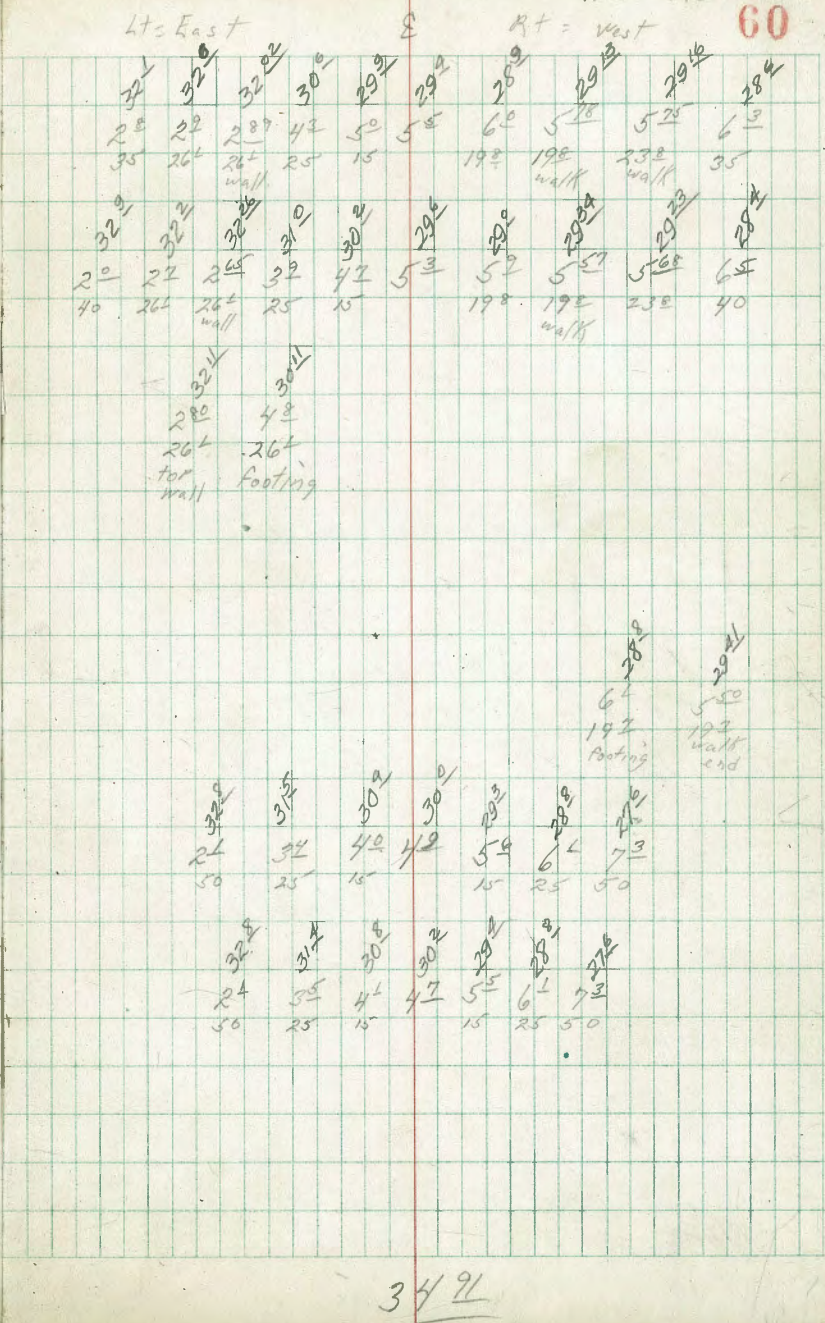 Lt = East ℄ Rt = West 60
32¹ 32⁰ 32⁰² 30⁶ 29⁹ 29⁴ 28⁹ 29¹³ 29¹⁶ 28⁶
2⁸ 2⁹ 2⁸⁹ 4³ 5⁰ 5⁵ 6⁰ 5⁷⁸ 5⁷⁵ 6³
35 26¹ 26¹ 25 15 19⁸ 19⁸ 23⁸ 35
wall walk walk
32⁹ 32² 32²⁶ 31⁰ 30² 29⁶ 29⁰ 29³⁴ 29²³ 28⁴
2⁰ 2⁷ 2⁶⁵ 3⁹ 4⁷ 5³ 5⁹ 5⁵⁷ 5⁶⁸ 6⁵
40 26¹ 26¹ 25 15 19⁸ 19⁸ 23⁸ 40
wall walk
32¹¹ 30¹¹
2⁸⁰ 4⁸
26¹ 26¹
top footing
wall
28⁸ 29⁴¹
6¹ 5⁵⁰
19⁷ 19⁷
footing walk
end
32⁸ 31⁵ 30⁹ 30⁰ 29³ 28⁸ 27⁶
2¹ 3⁴ 4⁰ 4⁹ 5⁶ 6¹ 7³
50 25 15 15 25 50
32⁸ 31⁴ 30⁸ 30² 29⁴ 28⁸ 27⁶
2¹ 3⁵ 4¹ 4⁷ 5⁵ 6¹ 7³
50 25 15 15 25 50
34⁹¹